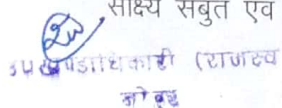 साक्ष्य सबुत एवं
उपखण्डाधिकारी (राजस्व